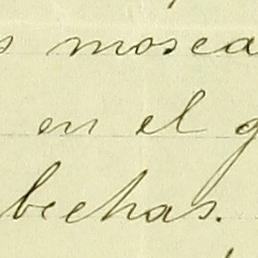 s mosca
en el g
bechas.